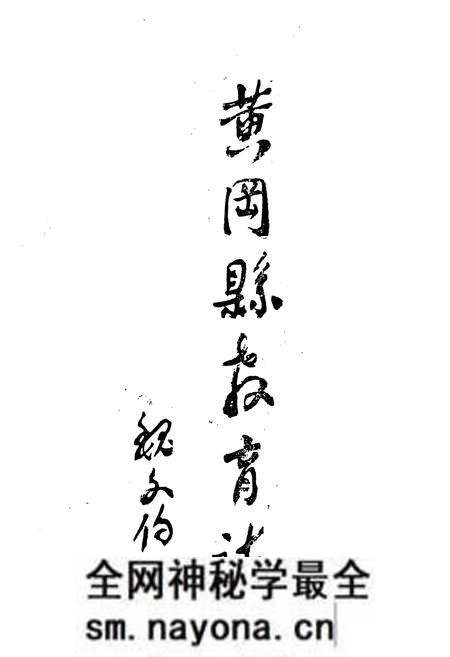 黄岡縣教育
魏文伯
全网神秘学最全
sm.nayona.cn